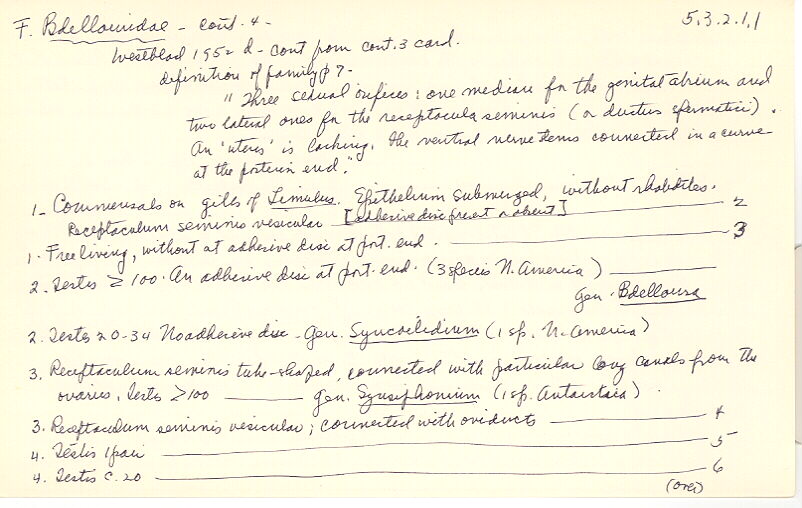 F. Bdellouridae - cont. 4 - 5.3.2.1.1
Westblad 1952 d - cont from cont. 3 card.
definition of family p 7 -
"Three sexual orifices: one mediane for the genital atrium and
two lateral ones for the receptacula seminis (or ductus spermatici).
An 'uterus' is lacking. The ventral nerve stems connected in a curve
at the posterior end."
1 - Commensals on gills of Limulus. Epithelium submerged, without rhabdites.
Receptaculum seminis vesicular [adhesive disc present or absent] 2
1. Free living, without at adhesive disc at post. end. 3
2. Testes ≥ 100. An adhesive disc at post. end. (3 species N. America)
Gen. Bdelloura
2. Testes 20-34 No adhesive disc - Gen. Syncoelidium (1 sp. N. America)
3. Receptaculum seminis tube-shaped, connected with particular long canals from the
ovaries. Testes ≥ 100 gen. Synsiphonium (1 sp. Antarctaia).
3. Receptaculum seminis vesicular; connected with oviducts 4
4. Testis 1 pair 5
4. Testis c. 20 6
(over)